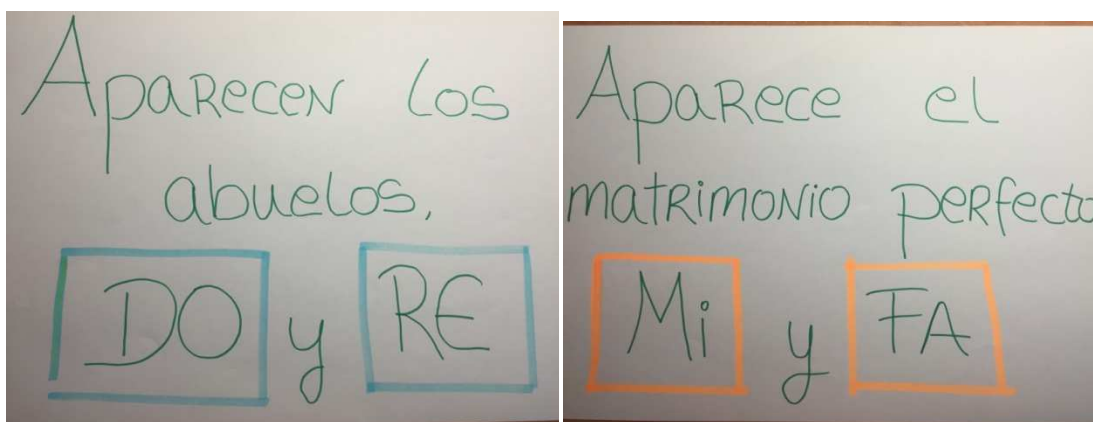 Aparecen los
abuelos,
DO y RE
Aparece el
matrimonio perfecto
Mi y FA